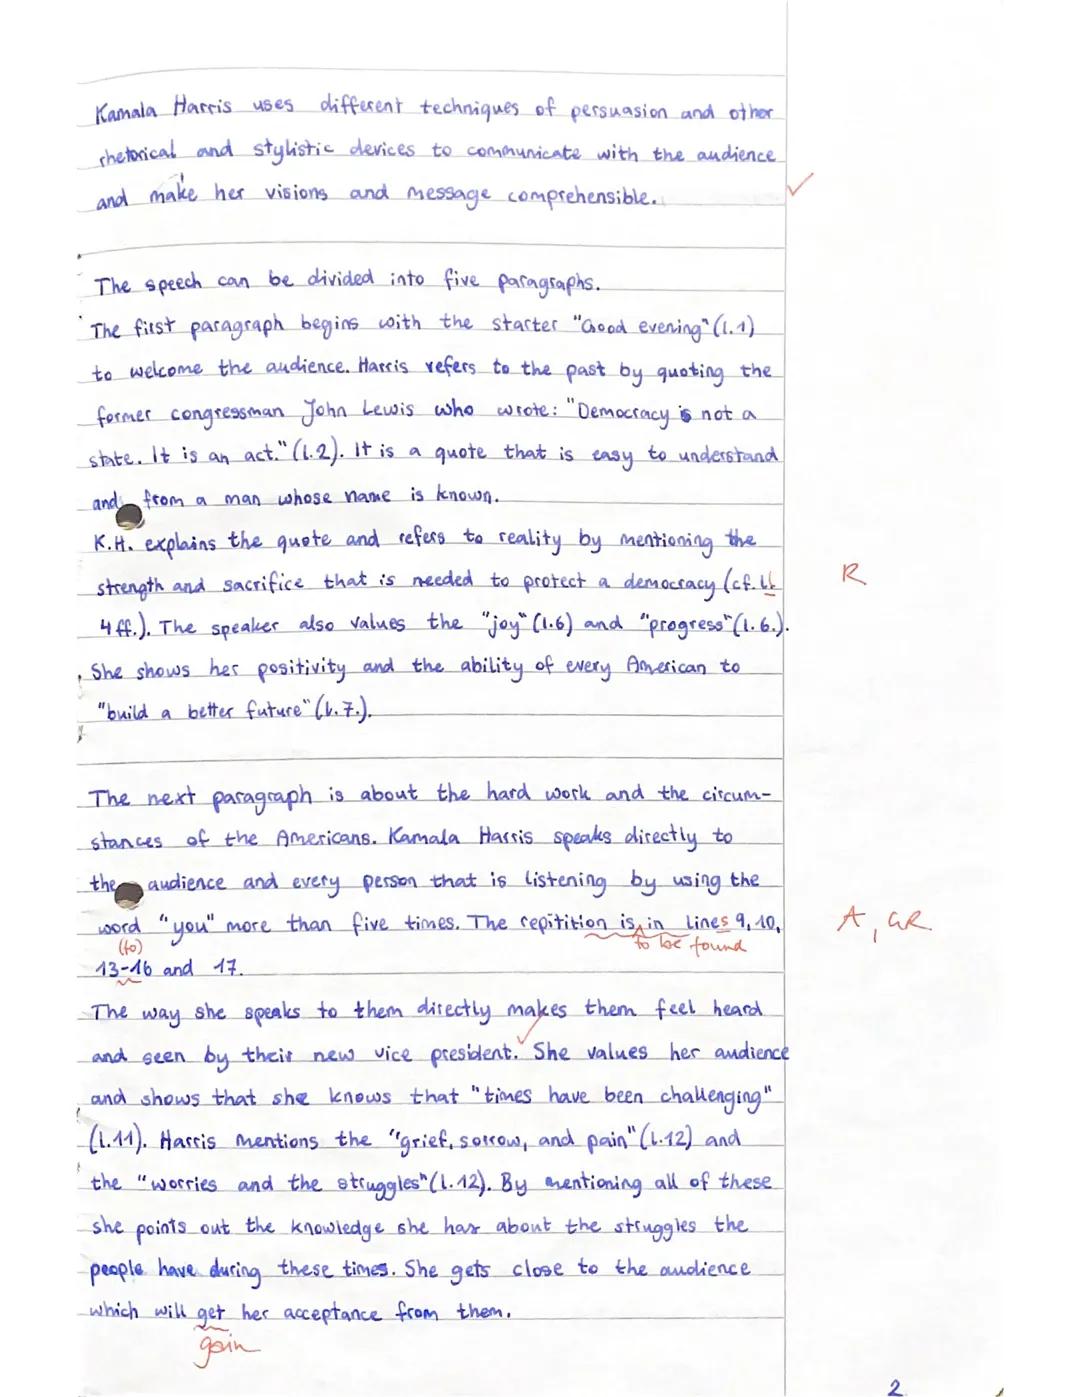 Kamala Harris uses different techniques of persuasion and other
rhetorical and stylistic devices to communicate with the audience
and make her visions and message comprehensible.
The speech can be divided into five paragraphs.
The first paragraph begins with the starter "Good evening" (l.1)
to welcome the audience. Harris refers to the past by quoting the
former congressman John Lewis who wrote: "Democracy is not a
state. It is an act." (l.2). It is a quote that is easy to understand
and from a man whose name is known.
K.H. explains the quote and refers to reality by mentioning the
strength and sacrifice that is needed to protect a democracy (cf. ll
R
4 ff.). The speaker also values the "joy" (l.6) and "progress" (l.6.).
She shows her positivity and the ability of every American to
"build a better future" (l.7.).
The next paragraph is about the hard work and the circum-
stances of the Americans. Kamala Harris speaks directly to
the audience and every person that is listening by using the
word "you" more than five times. The repitition is in lines 9, 10,
A, GR
(to) to be found
13-16 and 17.
The way she speaks to them directly makes them feel heard
and seen by their new vice president. She values her audience
and shows that she knows that "times have been challenging"
(l.11). Harris mentions the "grief, sorrow, and pain" (l.12) and
the "worries and the struggles" (l.12). By mentioning all of these
she points out the knowledge she has about the struggles the
people have during these times. She gets close to the audience
which will get her acceptance from them.
gain
2